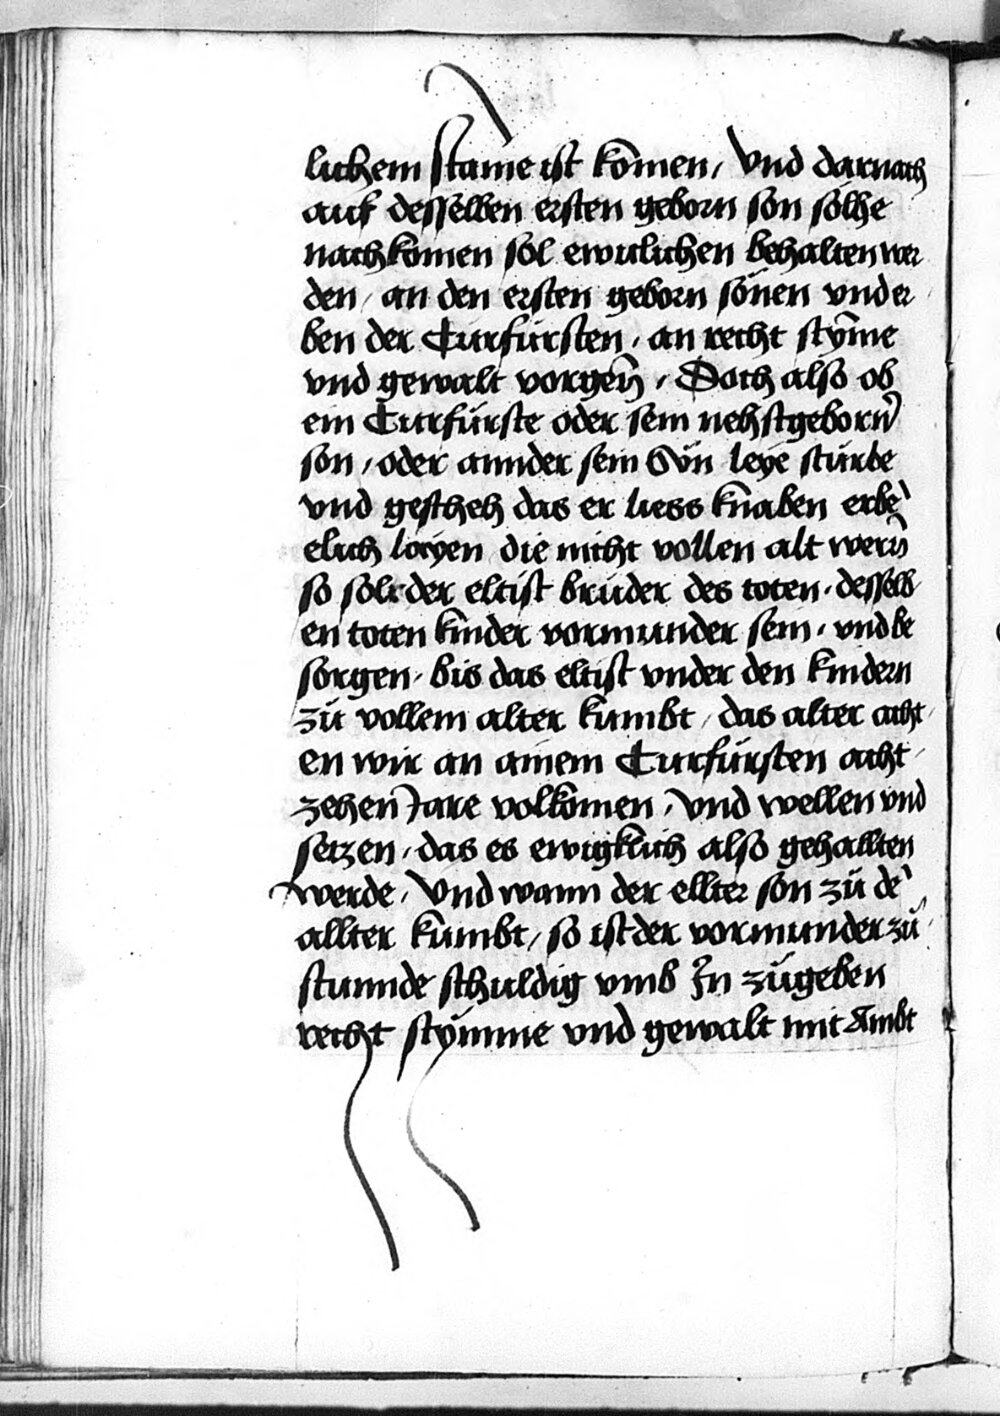 lichem stam̄e ist kom̄en / Vnd darnach
auf desselben ersten geborn son sölhe
nachkomen sol ewiclichen behalten wer
den / an den ersten geborn sönen vnd er
ben der Curfürsten / an recht stym̄e
vnd gewalt vorgen̄ / Doch also ob
ein Curfürste oder sein nehstgeborn̄
son / oder annder sein Sün leye stürbe
vnd gescheh das er liess knaben erbe͛
elich loyen die nicht vollen alt wern̄
so sol der eltist brüder des toten / desselb
en toten kinder vormunder sein / vnd be
sorgen / bis das eltist vnder den kindern
zů vollem alter kumbt / das alter acht
en wir an ainem Curfürsten acht
zehen Jare volkomen / Vnd wellen vnd
setzen / das es ewigklich also gehallten
werde / Vnd wann der ellter son zů de͛
allter kumbt / so ist der vormunder zů
stunnde schuldig vmb Jn zůgeben
recht stymme vnd gewalt mit Ambt